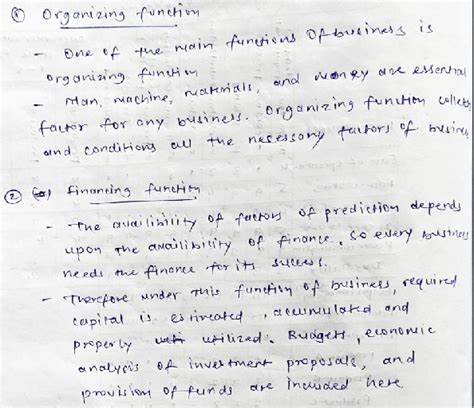 ① Organizing function
- One of the main functions of business is
organizing function
- Man, machine, materials, and money are essential
factor for any business. Organizing function collects
and conditions all the necessory factors of business
② Financing function
- The availibility of factors of prediction depends
upon the availibility of finance, so every business
needs the finance for its success.
- Therefore under this function of business, required
capital is estimated, accumulated and
properly utilized. Budgets, economic
analysis of investment proposals, and
provision of funds are included here